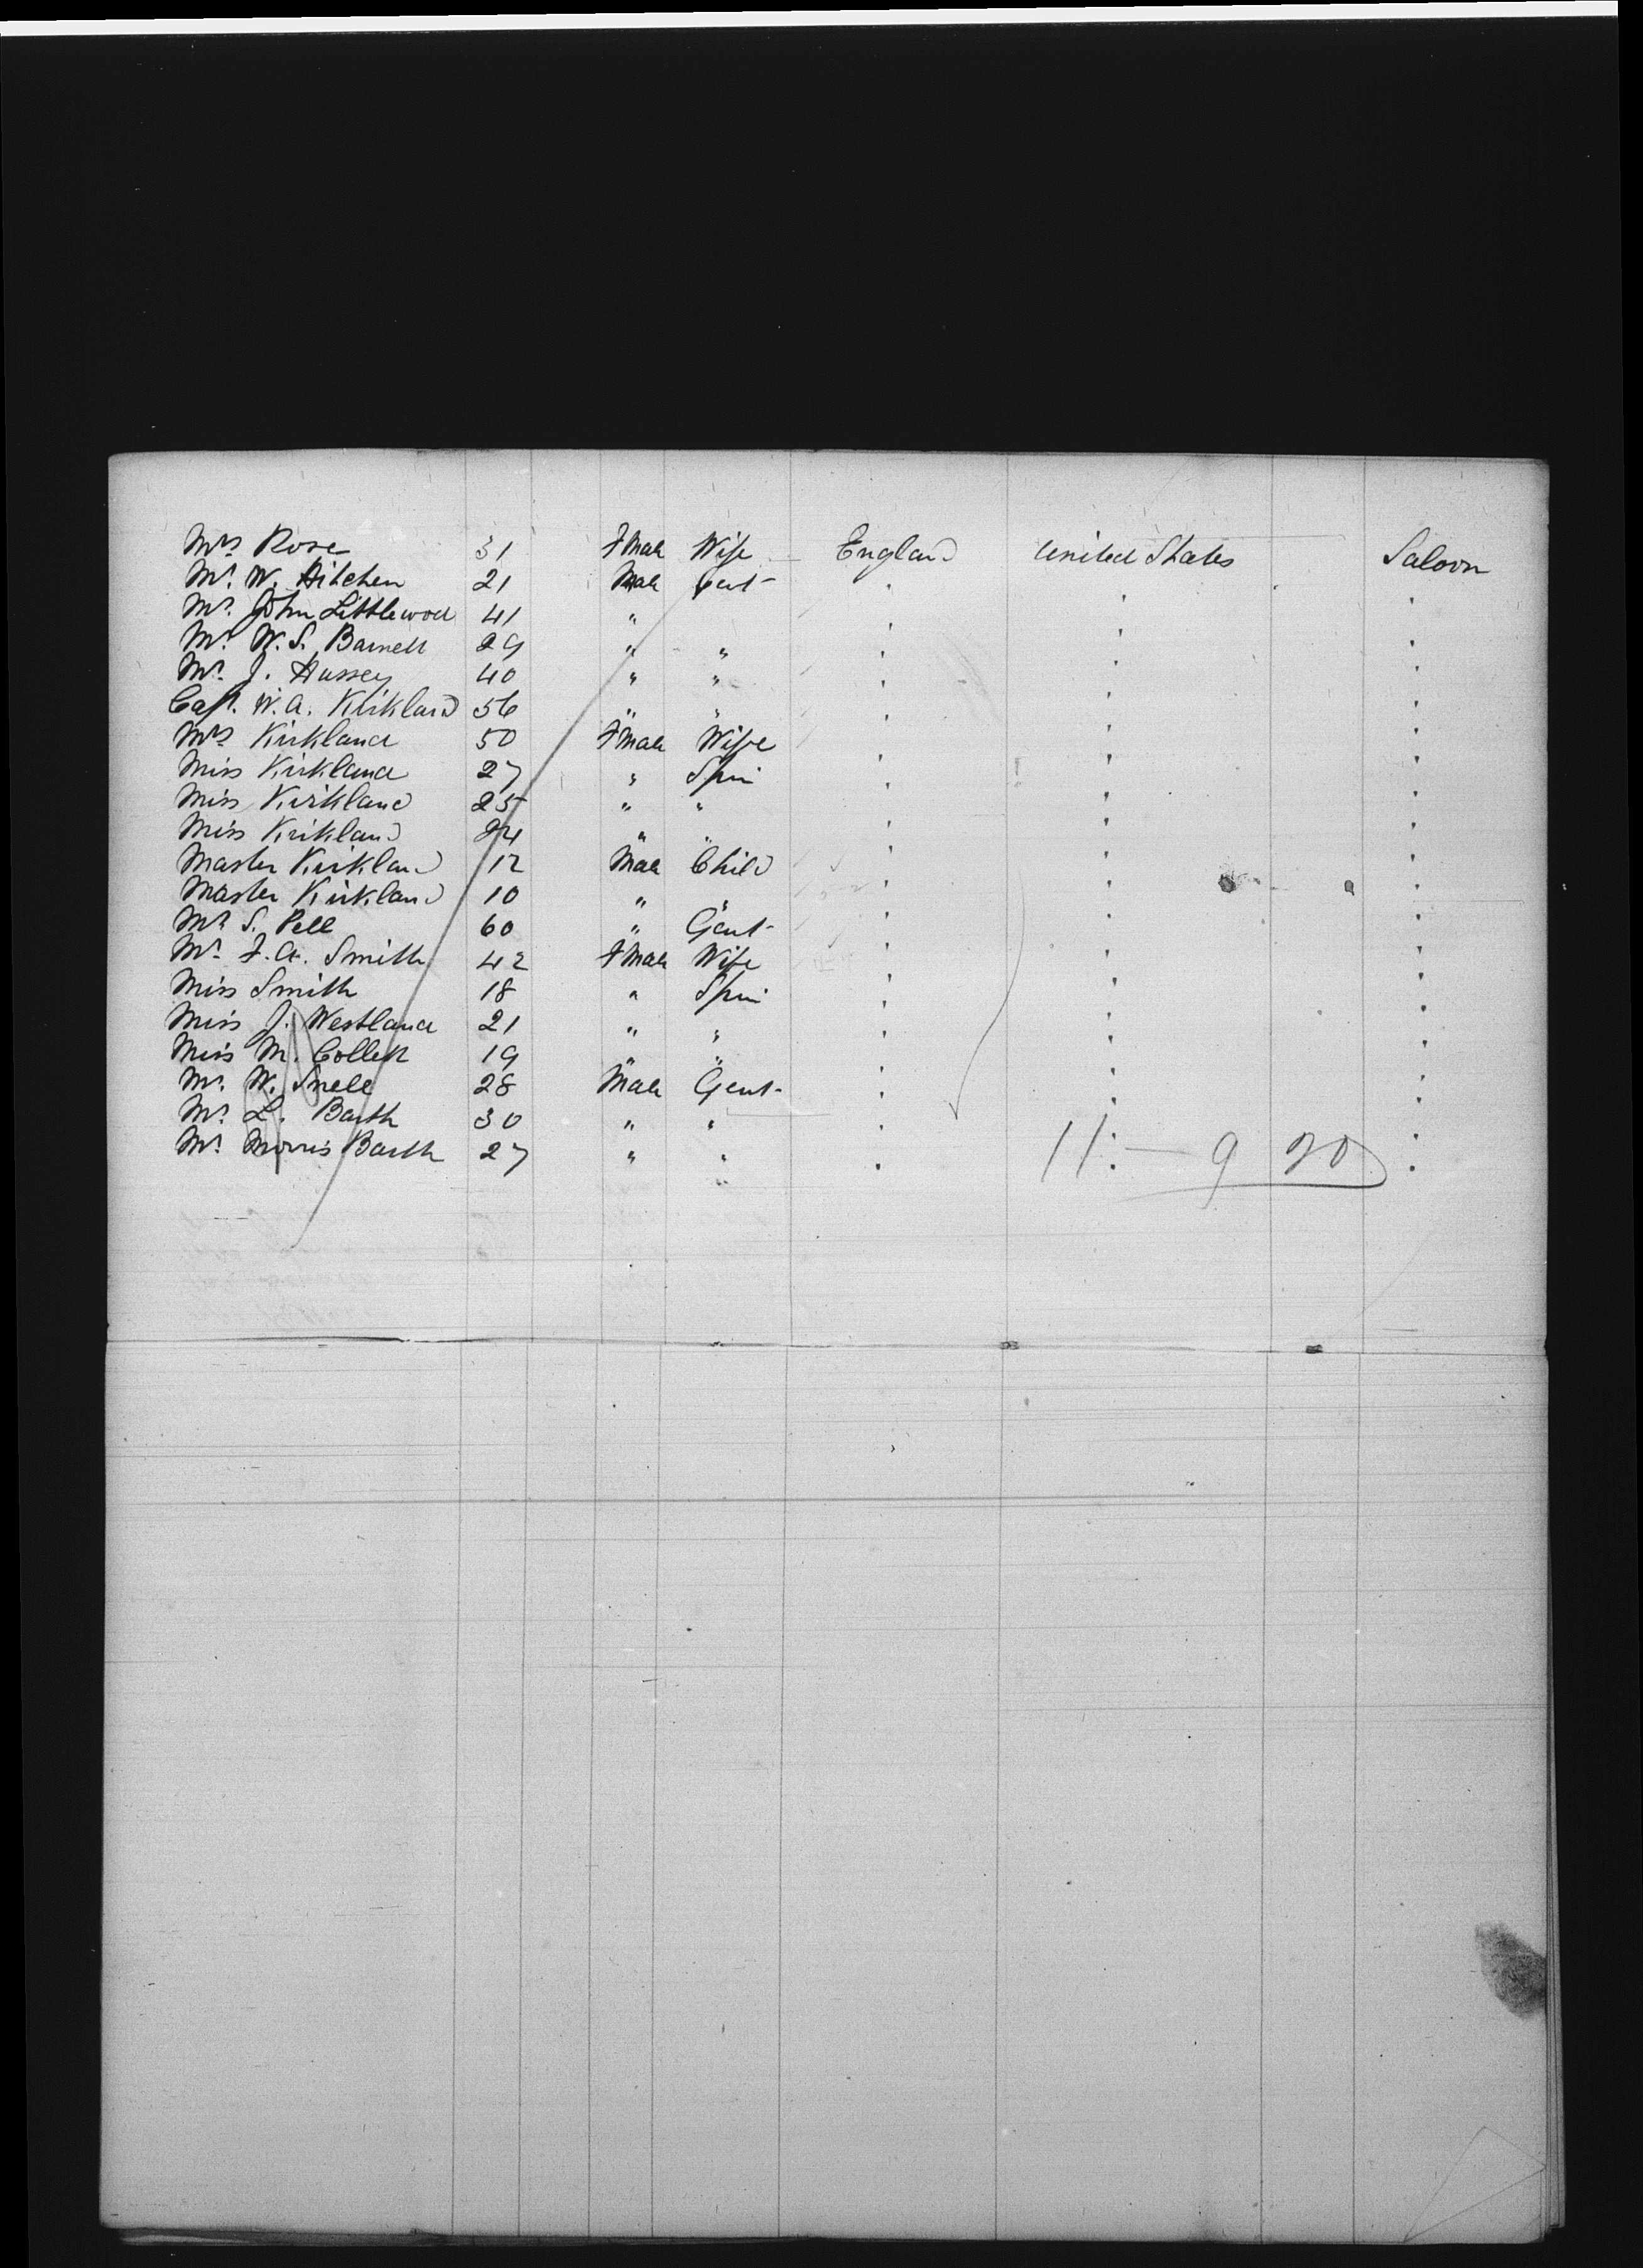 Mrs Rose 31 Fmale Wife England United States Saloon
Mr. W. Hitchen 21 Male Gent
Mr. John Littlewood 41 "
Mr. W. S. Barnett 29 " "
Mr. J. Hussey 40 " "
Capt. W. A. Kirkland 56 " "
Mrs Kirkland 50 Fmale Wife
Miss Kirkland 27 " Spin
Miss Kirkland 25 " "
Miss Kirkland 24 " "
Master Kirkland 12 Male Child
Master Kirkland 10 " "
Mr. S. Pell 60 " Gent
Mr. F. A. Smith 42 Fmale Wife
Miss Smith 18 " Spin
Miss J. Westland 21 " "
Miss M. Collett 19 " "
Mr. W. Snell 28 Male Gent
Mr. L. Barth 30 " "
Mr. Morris Barth 27 " " 11 - 9 20